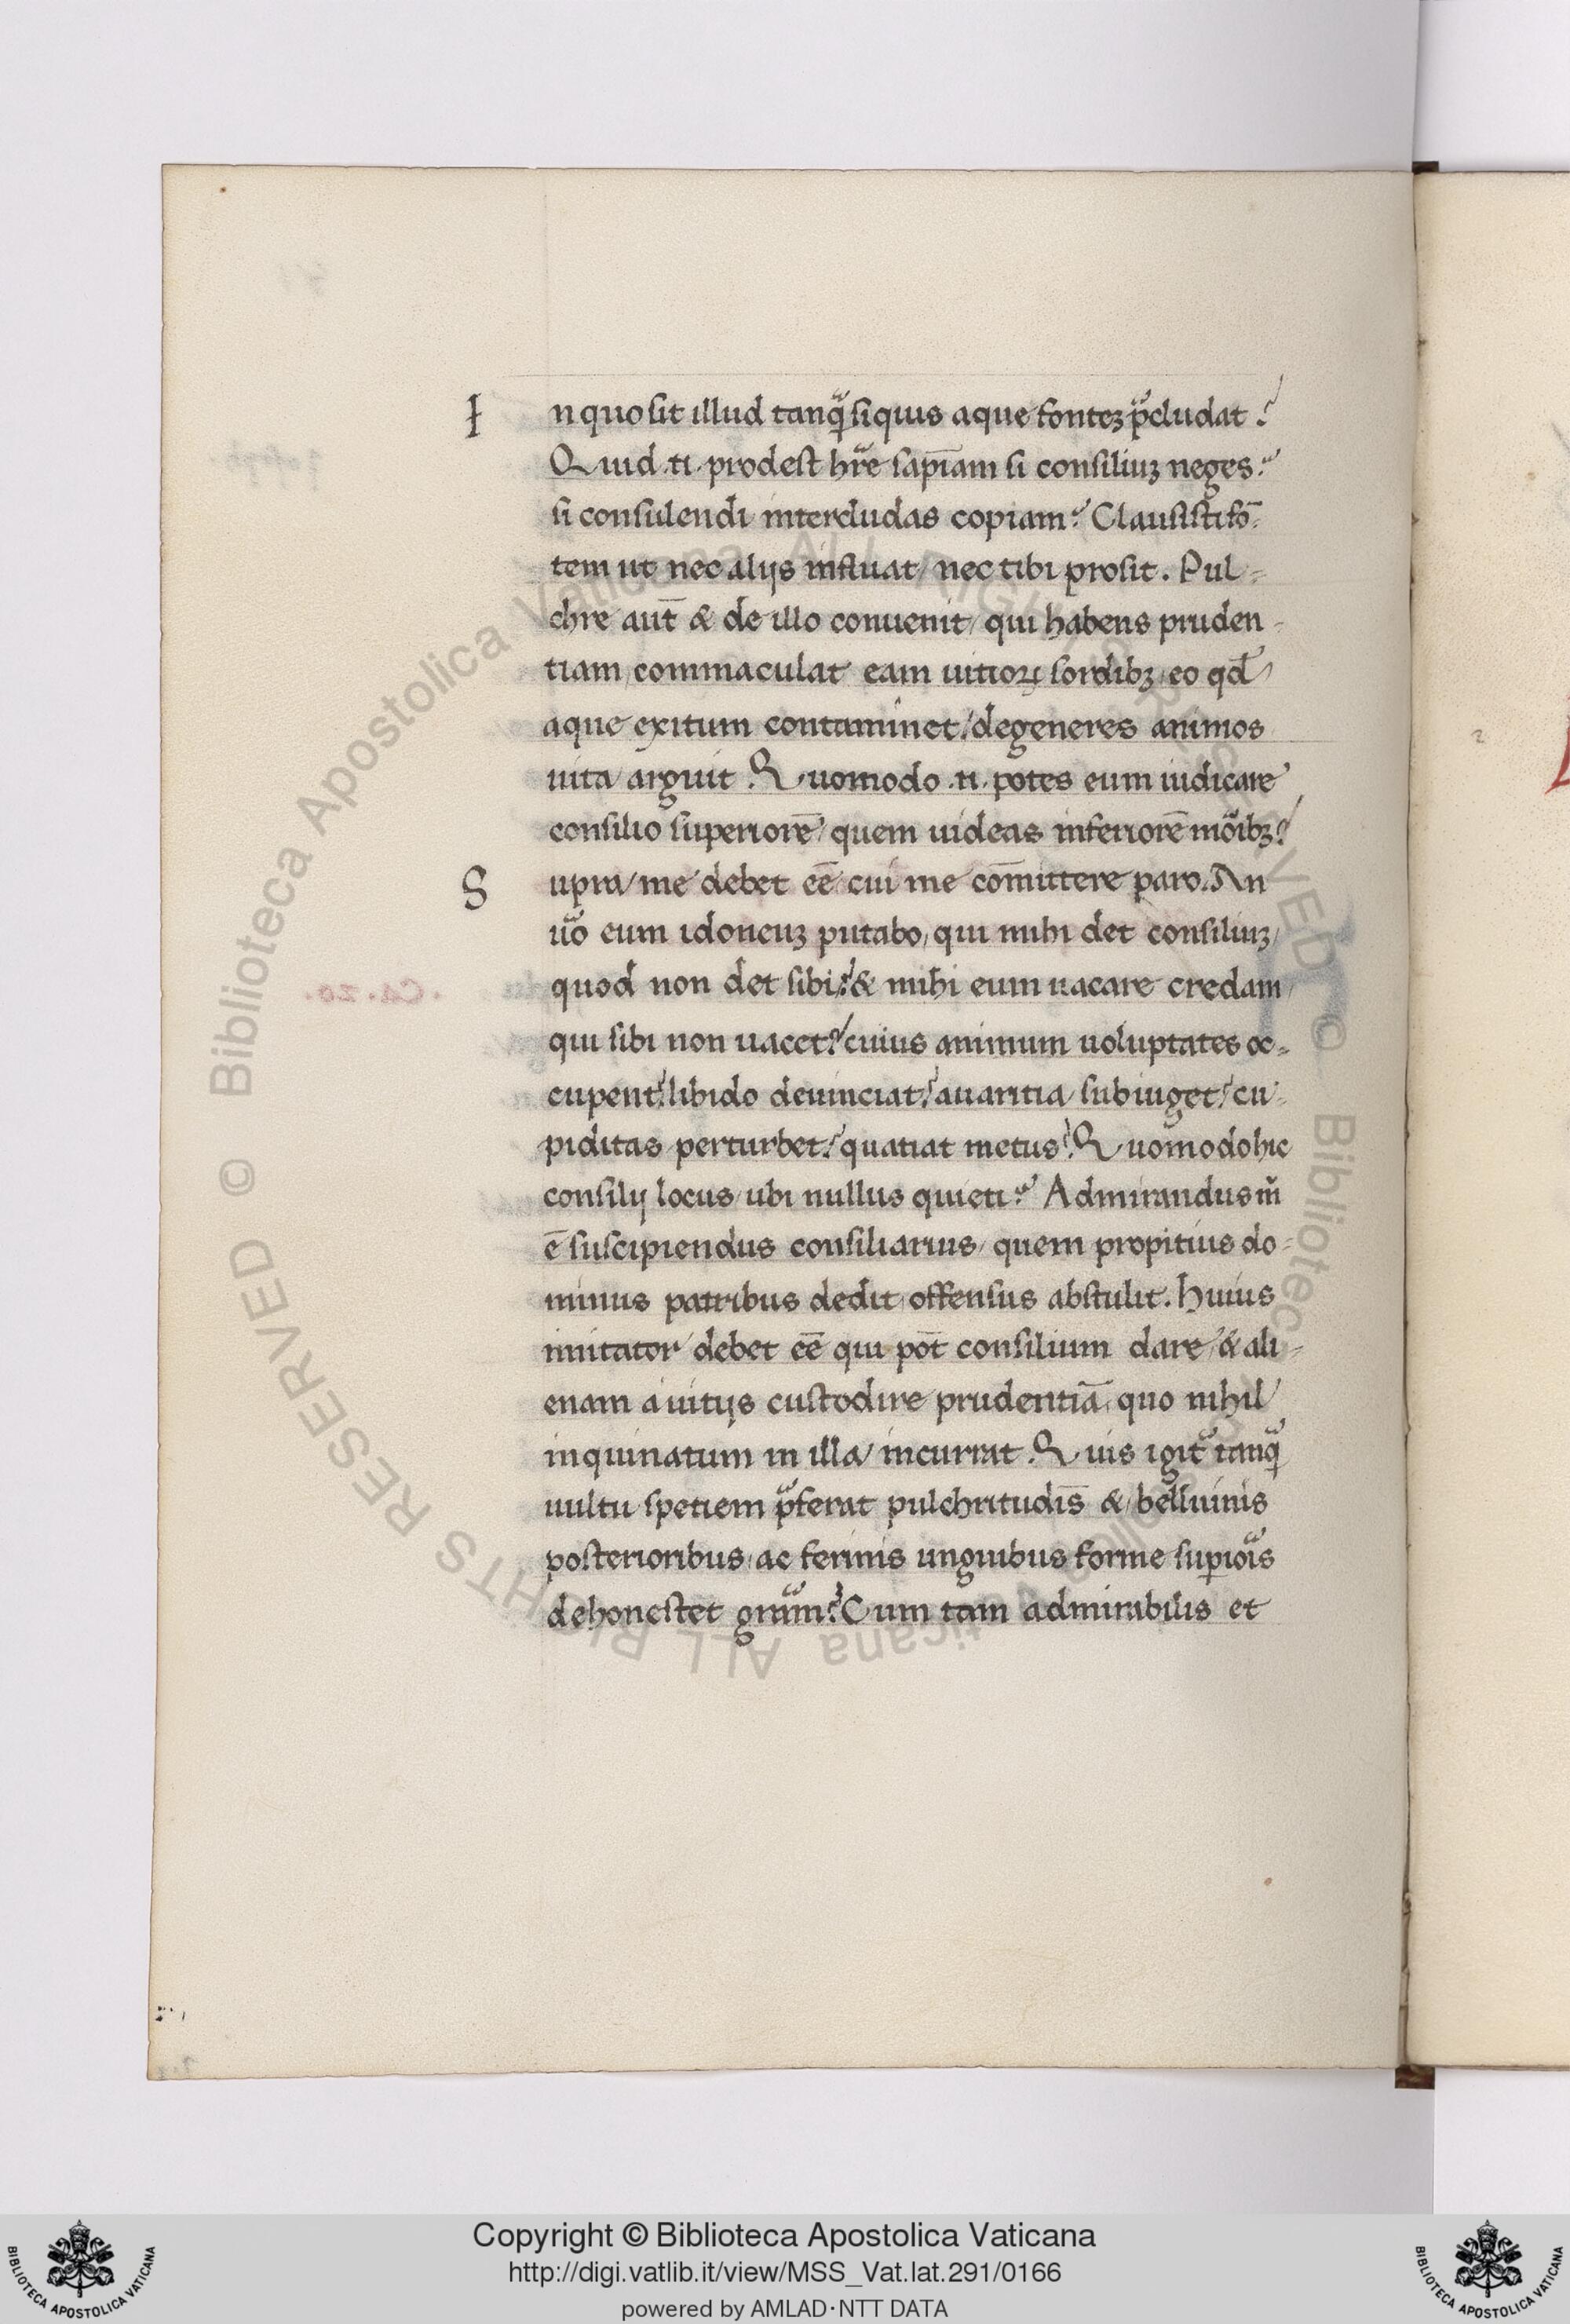 In quo sit illud tanq̃ siquis aque fonteʒ p̃cludat?
Quid .n. prodest hr̃e sap̃iam si consiliuʒ neges?
si consulendi intercludas copiam? Clausisti fō
tem ut nec alijs influat, nec tibi prosit. Pul-
chre aut̃ & de illo conuenit, qui habens pruden-
tiam, commaculat eam uitioꝝ sordibʒ, eo qd̃
aque exitum contaminet, degeneres animos
uita arguit. Quomodo .n. potes eum iudicare
consilio superiorē, quem uideas inferiorē mõibʒ?
Supra me debet eē cui me cōmittere paro. An
ũo eum idoneuʒ putabo, qui mihi det consiliuʒ,
quod non det sibi? & mihi eum uacare credam,
qui sibi non uacet? cuius animum uoluptates oc-
cupent? libido deuinciat? auaritia subiuget? cu-
piditas perturbet? quatiat metus? Quomodo hic
consilij locus, ubi nullus quieti? Admirandus m̃
ē suscipiendus consiliarius, quem propitius do-
minus patribus dedit, offensus abstulit. Huius
imitator debet eē qui pōt consilium dare, & ali-
enam a uitijs custodire prudentiā, quo nihil
inquinatum in illa incurrat. Quis igit̃ tanq̃
uultu spetiem p̃ferat pulchritudīs & belluinis
posterioribus, ac ferinis unguibus forme supiõis
dehonestet grãm? Cum tam admirabilis et
Copyright © Biblioteca Apostolica Vaticana
http://digi.vatlib.it/view/MSS_Vat.lat.291/0166
powered by AMLAD·NTT DATA
BIBLIOTECA APOSTOLICA VATICANA
BIBLIOTECA APOSTOLICA VATICANA
© Biblioteca Apostolica Vaticana ALL RIGHTS RESERVED
© Biblioteca Apostolica Vaticana ALL RIGHTS RESERVED